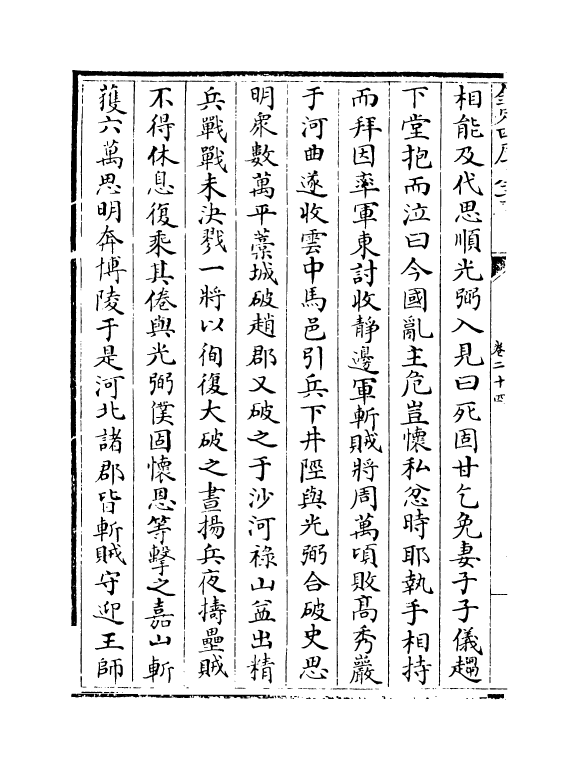 相能及代思順光弼入見曰死固甘乞免妻子子儀趨
下堂抱而泣曰今國亂主危豈懷私忿時耶執手相持
而拜因率軍東討收靜邊軍斬賊將周萬頃敗髙秀巖
于河曲遂收雲中馬邑引兵下井陘與光弼合破史思
明衆數萬平藁城破趙郡又破之于沙河祿山益出精
兵戰戰未決戮一將以徇復大破之晝揚兵夜擣壘賊
不得休息復乘其倦與光弼僕固懷恩等擊之嘉山斬
獲六萬思明奔博陵于是河北諸郡皆斬賊守迎王師
卷二十四